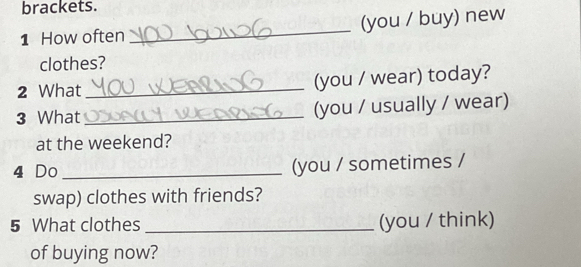 brackets.
1 How often YOU BUING (you / buy) new
clothes?
2 What YOU WEARING (you / wear) today?
3 What USUALLY WEARING (you / usually / wear)
at the weekend?
4 Do ____________ (you / sometimes /
swap) clothes with friends?
5 What clothes ____________ (you / think)
of buying now?